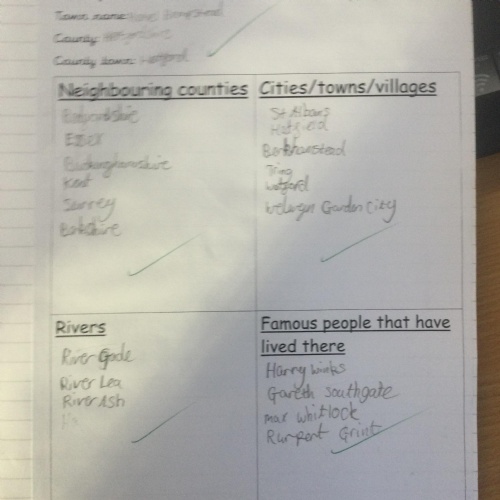 Town name: Hemel Hempstead
County: Hertfordshire
County town: Hertford
Neighbouring counties
Cities/towns/villages
Bedfordshire
Essex
Buckinghamshire
Kent
Surrey
Berkshire
St Albans
Hatfield
Berkhamstead
Tring
Watford
Welwyn Garden City
Rivers
River Gade
River Lea
River Ash
Famous people that have
lived there
Harry winks
Gareth Southgate
max whitlock
Grint